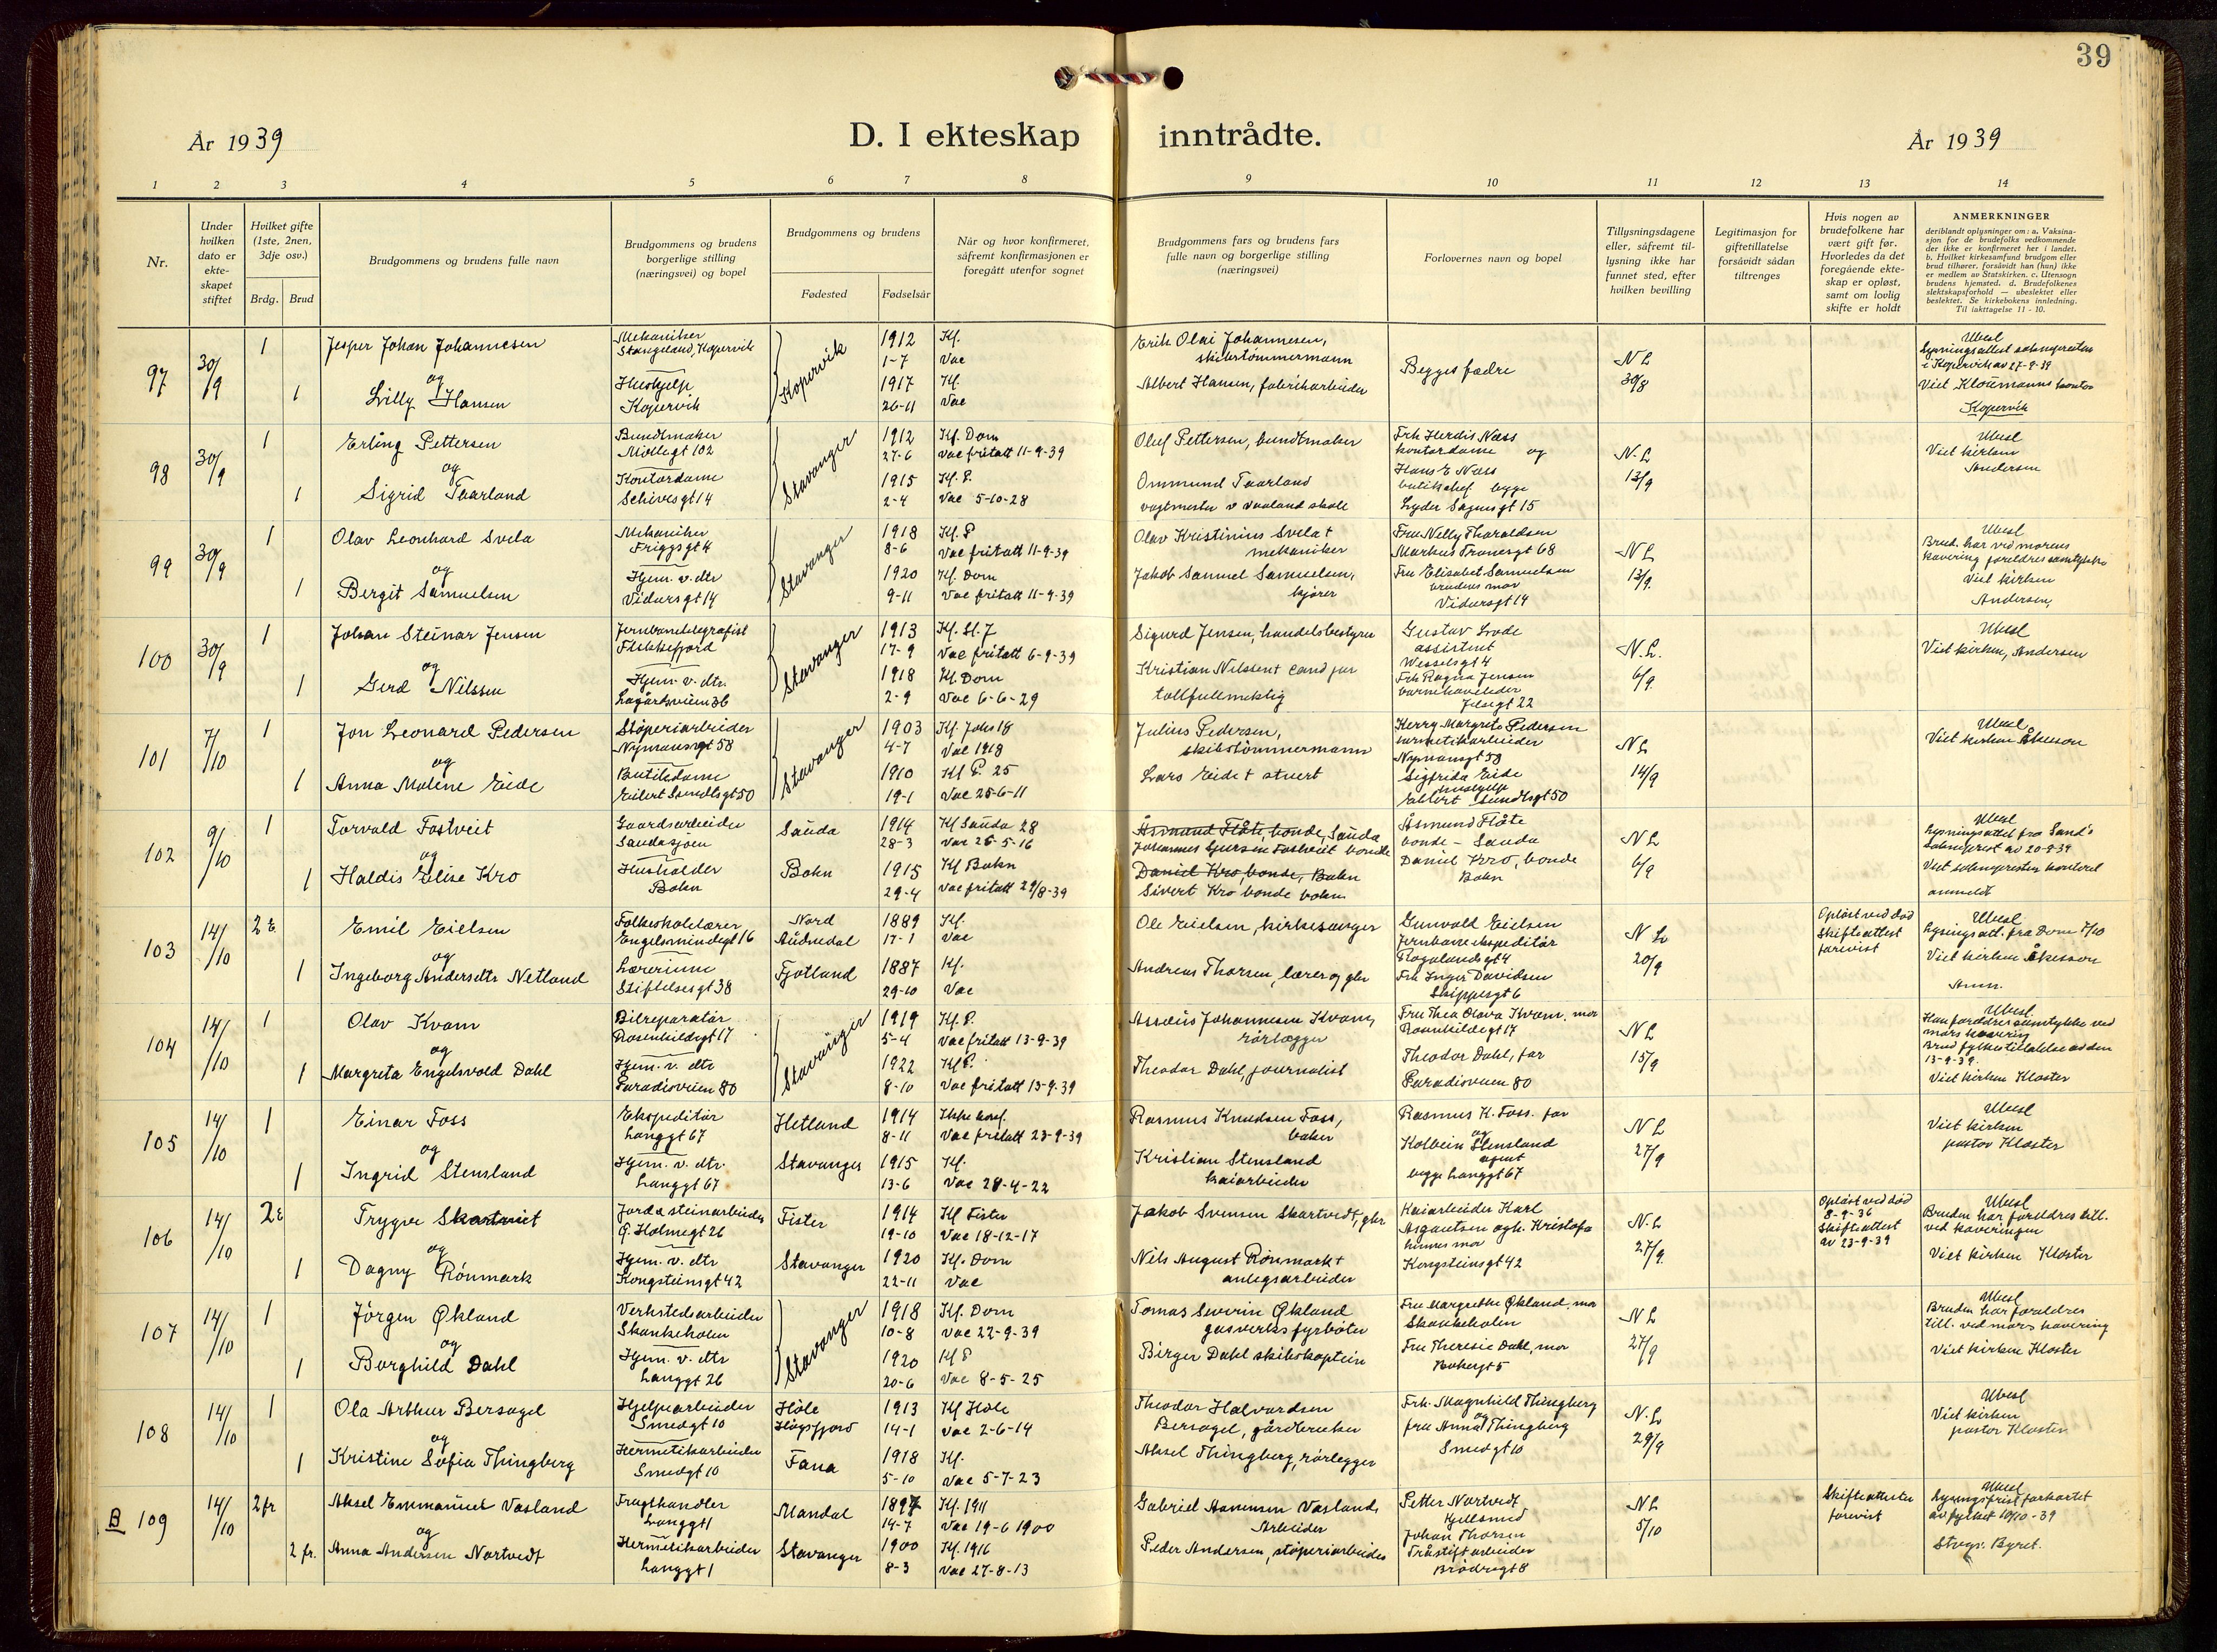 39
År 1939
D. I ekteskap inntrådte.
År 1939
1 2 3 4 5 6 7 8 9 10 11 12 13 14
Nr.
Under hvilken dato er ekteskapet stiftet
Hvilket gifte (1ste, 2nen, 3dje osv.)
Brdg. Brud
Brudgommens og brudens fulle navn
Brudgommens og brudens borgerlige stilling (næringsvei) og bopel
Brudgommens og brudens
Fødested Fødselsår
Når og hvor konfirmeret, såfremt konfirmasjonen er foregått utenfor sognet
Brudgommens fars og brudens fars fulle navn og borgerlige stilling (næringsvei)
Forlovernes navn og bopel
Tillysningsdagene eller, såfremt tillysning ikke har funnet sted, efter hvilken bevilling
Legitimasjon for giftetillatelse forsåvidt sådan tiltrenges
Hvis nogen av brudefolkene har vært gift før. Hvorledes da det foregående ekteskap er opløst, samt om lovlig skifte er holdt
ANMERKNINGER
deriblandt oplysninger om: a. Vaksinasjon for de brudefolks vedkommende der ikke er konfirmeret her i landet. b. Hvilket kirkesamfund brudgom eller brud tilhører, forsåvidt han (hun) ikke er medlem av Statskirken. c. Utensogn brudens hjemsted. d. Brudefolkenes slektskapsforhold — ubeslektet eller beslektet. Se kirkebokens innledning. Til iakttagelse 11 - 10.
97 30/9 1 Jesper Johan Johannesen Mekaniker Stangeland, Kopervik Kopervik 1912 1-7 Kf. Vac Erik Olai Johannesen, skibstømmermann Begges fædre N L 30/8 Ubesl
og
1 Lilly Hansen Hushjelp Kopervik 1917 26-11 Kf. Vac Albert Hansen, fabrikarbeider Lysningsattest soknepresten i Kopervik av 27-9-39
Viet Kloumanns kontor
Kopervik
98 30/9 1 Erling Pettersen Bundtmaker Møllegt 102 Stavanger 1912 27-6 Kf. Dom Vac fritatt 11-9-39 Oluf Pettersen, bundtmaker Frk Herdis Næss kontordame og N. L 13/9 Ubesl
og
1 Sigrid Taarland Kontordame Schivesgt 14 1915 2-4 Kf. P. Vac 5-10-28 Ommund Taarland vagtmester v Vaaland skole Hans E Næss butikchef begge Lyder Sagensgt 15 Viet kirken Andersen
99 30/9 1 Olav Leonhard Svela Mekaniker Friggsgt 4 Stavanger 1918 8-6 Kf. P Vac fritatt 11-9-39 Olav Kristinius Svela † mekaniker Fru Nelly Tharaldsen Markus Tranesgt 68 N L 13/9. Ubesl
og
1 Bergit Samuelsen Hjem. v. dtr Vidarsgt 14 1920 9-11 Kf. Dom Vac fritatt 11-9-39 Jakob Samuel Samuelsen, kjører Fru Elisabet Samuelsen brudens mor Vidarsgt 14 Brud. har ved morens kavering foreldres samtykke Viet kirken Andersen,
100 30/9 1 Johan Steinar Jensen Jernbanetelegrafist Flekkefjord Stavanger 1913 17-9 Kf. St. J Vac fritatt 6-9-39 Sigurd Jensen, handelsbestyrer Gustav Lode assistent Wesselsgt 4 N. L. 6/9. Ubesl
og
1 Gerd Nilssen Hjem. v. dtr. Lagårdsveien 36 1918 2-9 Kf. Dom Vac 6-6-29 Kristian Nilssen † cand jur tollfullmektig Frk Ragna Jensen barnehaveleder 22 Viet kirken, Andersen
101 7/10 1 Jon Leonard Pedersen Støperiarbeider Nymansgt 58 Stavanger 1903 4-7 Kf. Johs 18 Vac 1918 Julius Pedersen, skibstømmermann Kerry Margrete Pedersen hermetikarbeider Nymansgt 58 N L 14/9 Ubesl
og
1 Anna Malene Eide Butikdame Eilert Sundtsgt 50 1910 19-1 Kf P. 25 Vac 25-6-11 Lars Eide † stuert Sigfrida Eide hushjelp Eilert Sundtsgt 50 Viet kirken Åkeson
102 9/10 1 Torvald Fostveit Gaardsarbeider Saudasjøen Sauda 1914 28-3 Kf Sauda 28 Vac 25-5-16 Åsmund Flåte, bonde, Sauda Johannes Fostveit bonde Åsmund Flåte bonde - Sauda N L 6/9 Ubesl
og
1 Haldis Elise Kro Husholder Bokn Bokn 1915 29-4 Kf Bokn Vac fritatt 29/8-39 Daniel Kro, bonde, Bokn Sivert Kro bonde bokn Daniel Kro, bonde Bokn Lysningsattest fra Sand's Sokneprest av 20-9-39
Viet sokneprestens kontorel
anmeldt
103 14/10 2 E Emil Eielsen Folkeskolelærer Engelsmindegt 16 Nord Audnedal 1889 17-1 Kf. Vac Ole Eielsen, kirkesanger Gunvald Eielsen Jernbaneekspeditør Rogalandsgt 4 N L 20/9 Opløst ved død Skifteattest forevist Ubesl
og
1 Ingeborg Andersdtr Netland Lærerinne Stiftelsesgt 38 Fjotland 1887 29-10 Kf. Vac Andreas Thorsen, lærer og gbr Frk Inger Davidsen Skippergt 6 Lysingsatt. fra Dom 7/10
Viet kirken Åkesson
Ann.
104 14/10 1 Olav Kvam Bilreparatør Rosenkildegt 17 Stavanger 1919 5-4 Kf. P. Vac fritatt 13-9-39 Johannesen Kvam, rørlægger Fru Thea Olava Kvam, mor Rosenkildegt 17 N L 15/9 Ubesl
og
1 Margreta Engelsvold Dahl Hjem. v. dtr Paradisveien 80 1922 8-10 Kf P. Vac fritatt 13-9-39 Theodor Dahl, journalist Theodor Dahl, far Paradisveien 80 Han foreldresamtykke ved mors kavering Brud fylkestillatelse av den 13-9-39. Viet kirken Kloster
105 14/10 1 Einar Foss Ekspeditør Langgt 67 Hetland 1914 8-11 Ikke konf. Vac fritatt 23-9-39 Rasmus Knudsen Foss, baker Rasmus K. Foss. far og N L 27/9 Ubesl
og
1 Ingrid Stensland Hjem. v. dtr. Langgt 67 Stavanger 1915 13-6 Kf. Vac 28-4-22 Kristian Stensland kaiarbeider Kolbein Stensland agent begge Langgt 67 Viet kirken pastor Kloster
106 14/10 2 E Trygve Skartveit Jord & steinarbeider G. Holmegt 26 Fister 1914 19-10 Kf Fister Vac 18-12-17 Jakob Svensen Skartvedt, gbr Kaiarbeider Karl Asgautsen og h. Kristofa hennes mor Kongsteinsgt 42 N. L 27/9. Opløst ved død 8-9-36 Skifteattest av 23-9-39 Ubesl
og
1 Dagny Rönmark Hjem. v. dtr Kongsteinsgt 42 Stavanger 1920 22-11 Kf. Dom Vac Nils August Rönmark † anlegsarbeider Bruden har foreldres till. ved kaveringen Viet kirken Kloster
107 14/10 1 Jörgen Økland Verkstedsarbeider Skankeholen Stavanger 1918 10-8 Kf. Dom Vac 22-9-39 Tomas Severin Økland gasverksfyrbøter Fru Margrethe Økland, mor Skankeholen N L 27/9 Ubesl
og
1 Borghild Dahl Hjem. v. dtr Langgt 26 1920 20-6 Kf P Vac 8-5-25 Birger Dahl skibskaptein Fru Theresie Dahl, mor Bruden har foreldres till. ved mors kavering Viet kirken Kloster
108 14/10 1 Ola Arthur Bersagel Hjelpearbeider Smedgt 10 Höle Høgsfjord 1913 14-1 Kf Höle Vac 2-6-14 Theodor Halvardsen Bersagel, gårdbruker Frk. Magnhild Thingberg og N. L 29/9 Ubesl
og
1 Kristine Sofia Thingberg Hermetikarbeider Smedgt 10 Fana 1918 5-10 Kf. Vac 5-7-23 Aksel Thingberg, rørlegger fru Anna Thingberg Smedgt 10 Viet kirken pastor Kloster
B 109 14/10 2 fr Aksel Emmanuel Vasland Frugthandler Langgt 1 Mandal 1897 14-7 Kf. 1911 Vac 19-6 1900 Gabriel Aanensen Vasland, Arbeider Petter Nortvedt N L 5/10 Skifteattester forevist Ubesl
og
2 fr. Anna Andersen Nortvedt Hermetikarbeider Langgt 1 Stavanger 1900 8-3 Kf. 1916 Vac 27-8-13 Peder Andersen, støperiarbeider Johan Thorsen Tråstiftarbeider Brødregt 8 Lysingsfrist forkortet av fylket 10/10-39
Stvgr. Byret.